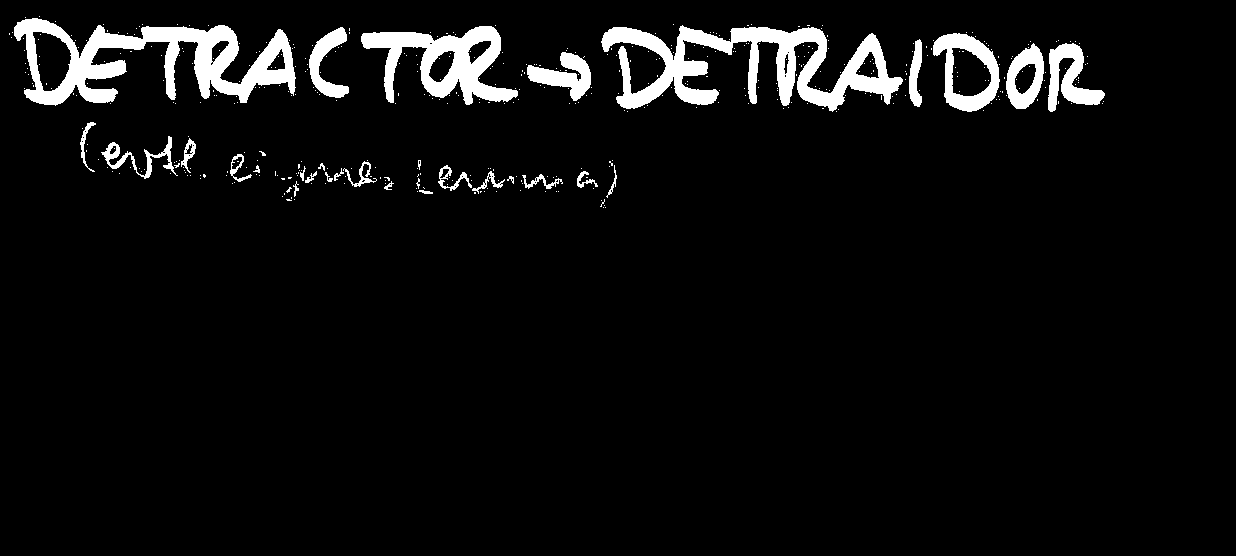 DETRACTOR → DETRAIDOR
(evtl. eigenes Lemma)